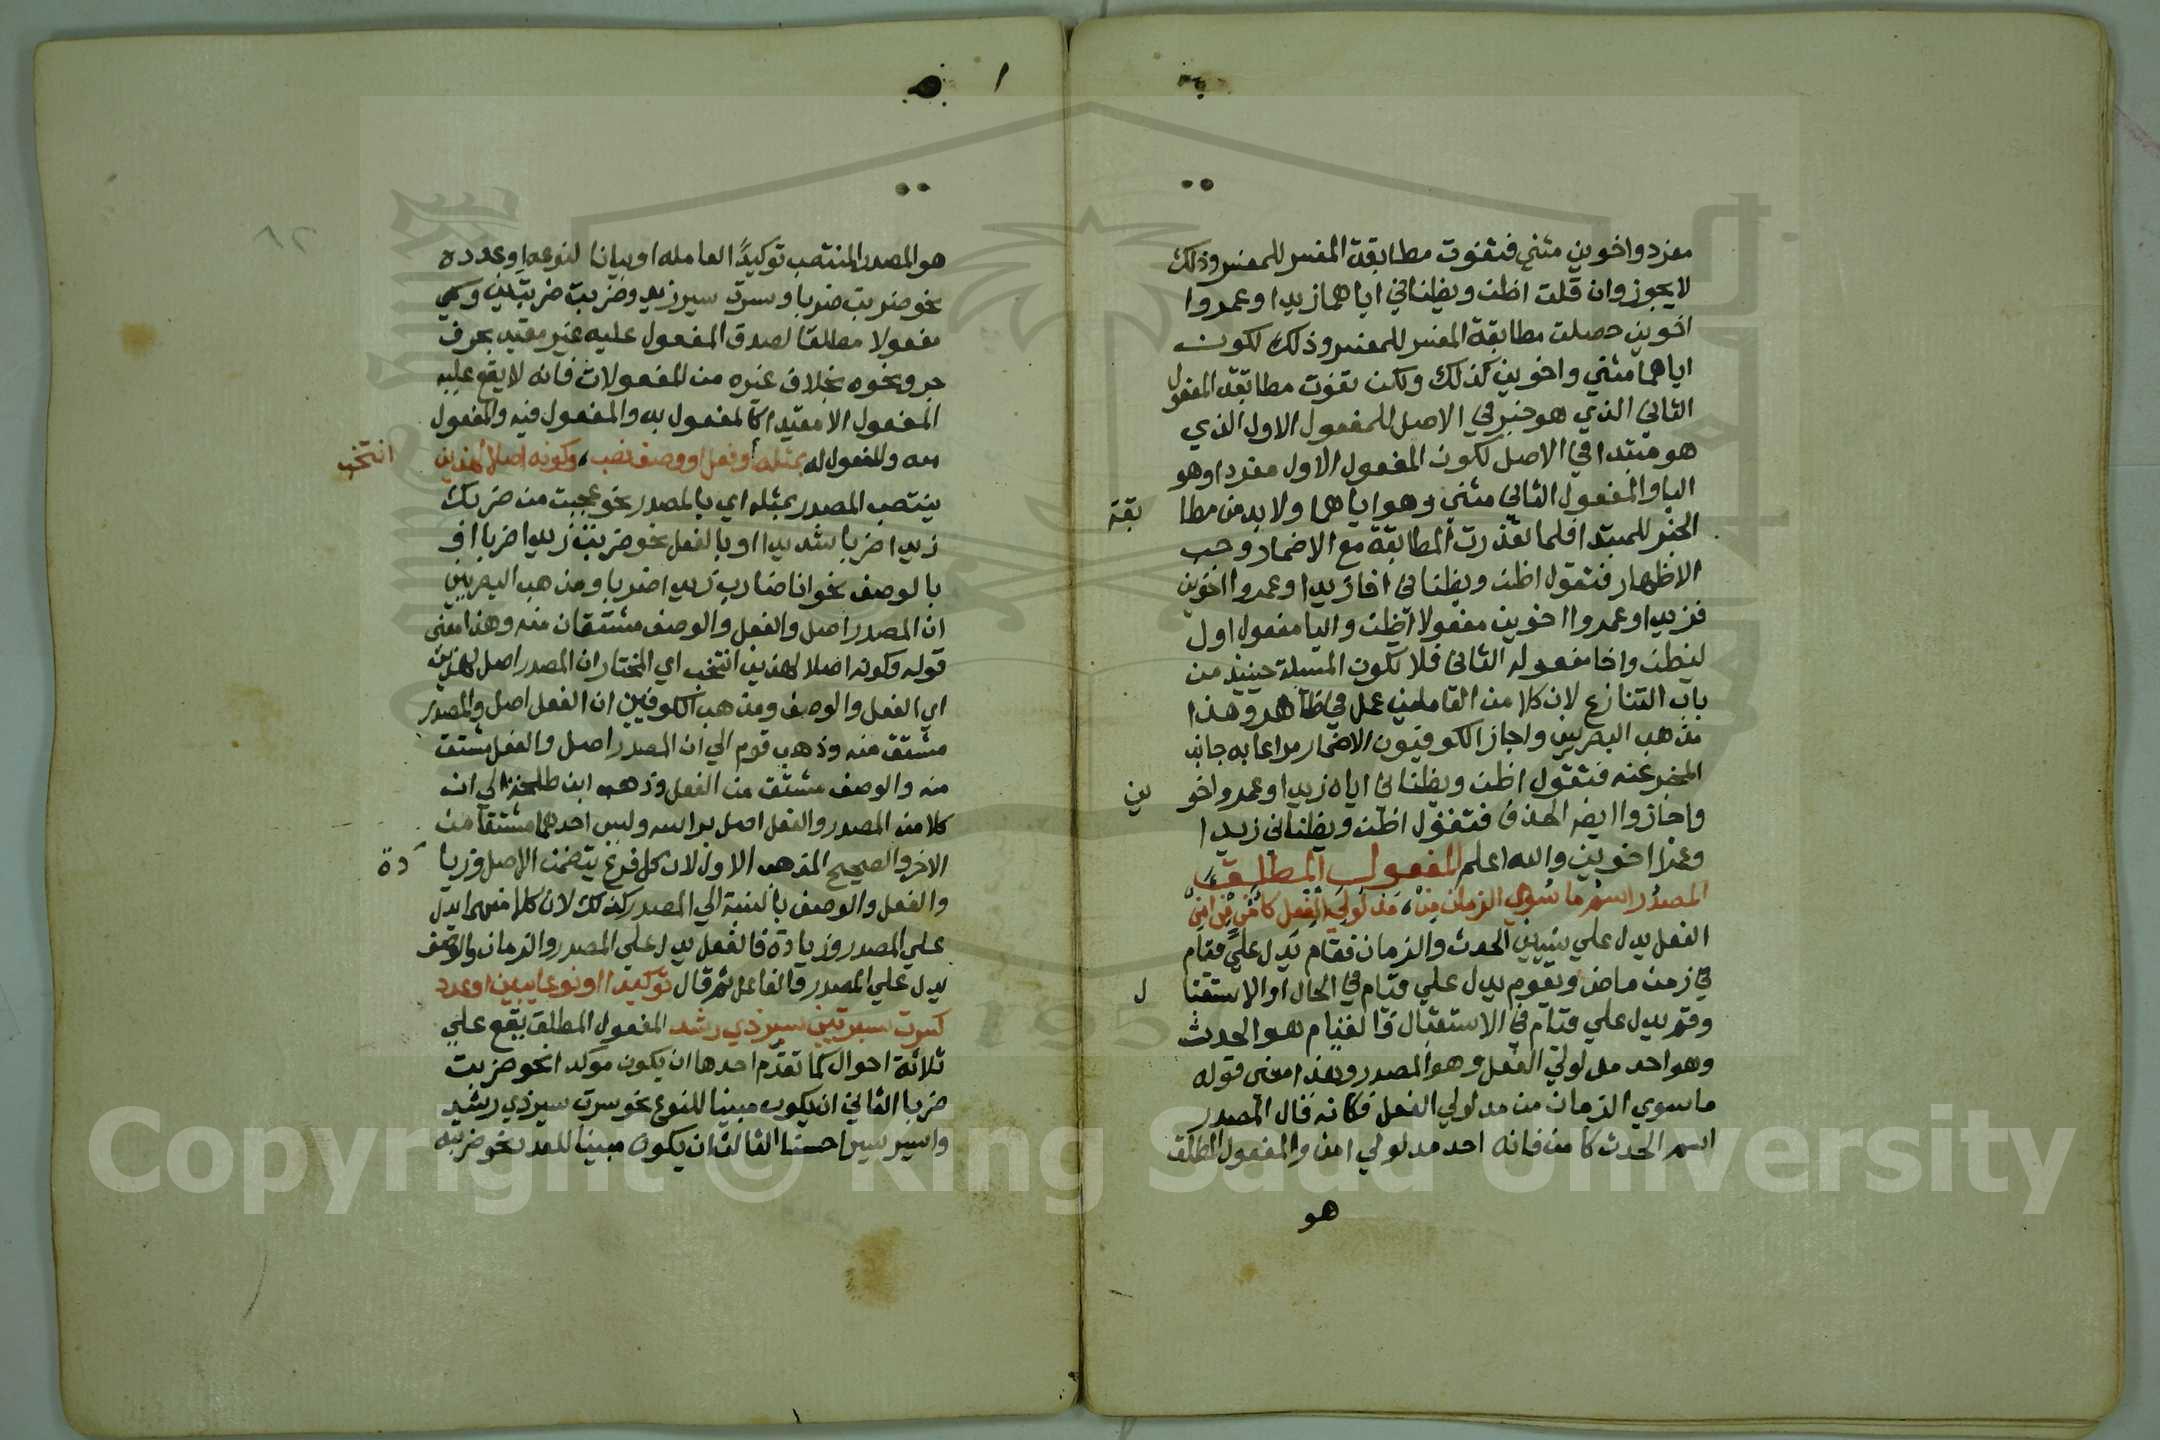 مفرد واخوين مثني فتفوت مطابقة المفسر للمفسر وذلك
لا يجوز وان قلت اظن ويظناني اياهما زيدا وعمروا
اخوين حصلت مطابقة المفسر للمفسر وذلك لكون
اياهما مثني واخوين كذلك ولكن تفوت مطابقة المفعول
الثاني الذي هو خبر في الاصل للمفعول الاول الذي
هو مبتدا في الاصل لكون المفعول الاول مفردا وهو
اليا والمفعول الثاني مثني وهو اياهما ولا بد من مطا بقة
الخبر للمبتدا فلما تعذرت المطابقة مع الاضمار وجب
الاظهار فتقول اظن ويظناني اخا زيدا وعمروا اخوين
فزيدا وعمروا اخوين مفعولا اظن واليا مفعول اول
ليظن واخا مفعوله الثاني فلا تكون المسيلة حينيذ من
باب التنازع لان كلا من العاملين عمل في ظاهر وهذا
مذهب البصريين واجاز الكوفيون الاضمار مراعا به جانب
المخبر عنه فتقول اظن ويظناني اياه زيدا وعمروا اخو ين
واجازوا ايضا الحذف فتقول اظن ويظناني زيدا
وعمرا اخوين والله اعلم المفعول المطلق
المصدر اسم ما سوي الزمان من مدلولي الفعل كامن من امن
الفعل يدل علي شييين الحدث والزمان فقام يدل علي قيام
في زمن ماض ويقوم يدل علي قيام في الحال او الاستقبا ل
وقم يدل علي قيام في الاستقبال فالقيام هو الحدث
وهو احد مدلولي الفعل وهو المصدر وهذا معني قوله
ما سوي الزمان من مدلولي الفعل فكانه قال المصدر
اسم الحدث كامن فانه احد مدلولي امن والمفعول المطلق
هو
هو المصدر المنتصب توكيدًا لعامله او بيانا لنوعه او عدده
نحو ضربت ضربا وسرت سير زيد وضربت ضربتين وسمي
مفعولا مطلقا لصدق المفعول عليه غير مقيد بحرف
جر ونحوه بخلاف غيره من المفعولات فانه لا يقع عليه
المفعول الا مقيدا كالمفعول به والمفعول فيه والمفعول
معه والمفعول له بمثله او فعل او وصف نصب وكونه اصلا لهذين انتخب
ينتصب المصدر بمثله اي بالمصدر نحو عجبت من ضربك
زيدا ضربا شديدا او بالفعل نحو ضربت زيدا ضربا او
بالوصف نحو انا ضارب زيدا ضربا ومذهب البصريين
ان المصدر اصل والفعل والوصف مشتقان منه وهذا معني
قوله وكونه اصلا لهذين انتخب اي المختار ان المصدر اصل لهذين
اي الفعل والوصف ومذهب الكوفيين ان الفعل اصل والمصدر
مشتق منه وذهب قوم الي ان المصدر اصل والفعل مشتق
منه والوصف مشتق من الفعل وذهب ابن طلحة الي ان
كلا من المصدر والفعل اصل براسه وليس احدهما مشتقا من
الاخر والصحيح المذهب الاول لان كل فرع يتضمن الاصل وزيا دة
والفعل والوصف بالنسبة الي المصدر كذلك لان كلا منهما يدل
علي المصدر وزيادة فالفعل يدل علي المصدر والزمان والوصف
يدل علي المصدر والفاعل ثم قال توكيدا او نوعا يبين او عدد
كسرت سيرتين سير ذي رشد المفعول المطلق يقع علي
ثلاثة احوال كما تقدم احدها ان يكون موكدا نحو ضربت
ضربا الثاني ان يكون مبينا للنوع نحو سرت سير ذي رشد
واسير سيرا حسنا الثالث ان يكون مبينا للعدد نحو ضربته
٨٢
Copyright © King Saud University
1957